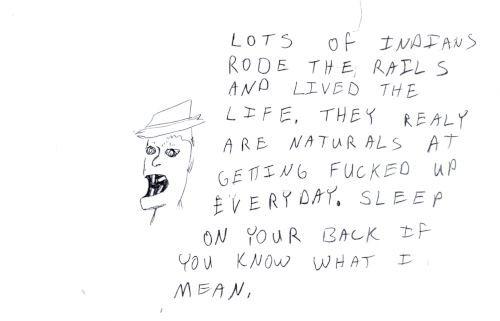 LOTS OF INDIANS
RODE THE RAILS
AND LIVED THE
LIFE. THEY REALY
ARE NATURALS AT
GETTING FUCKED UP
EVERYDAY. SLEEP
ON YOUR BACK IF
YOU KNOW WHAT I
MEAN.